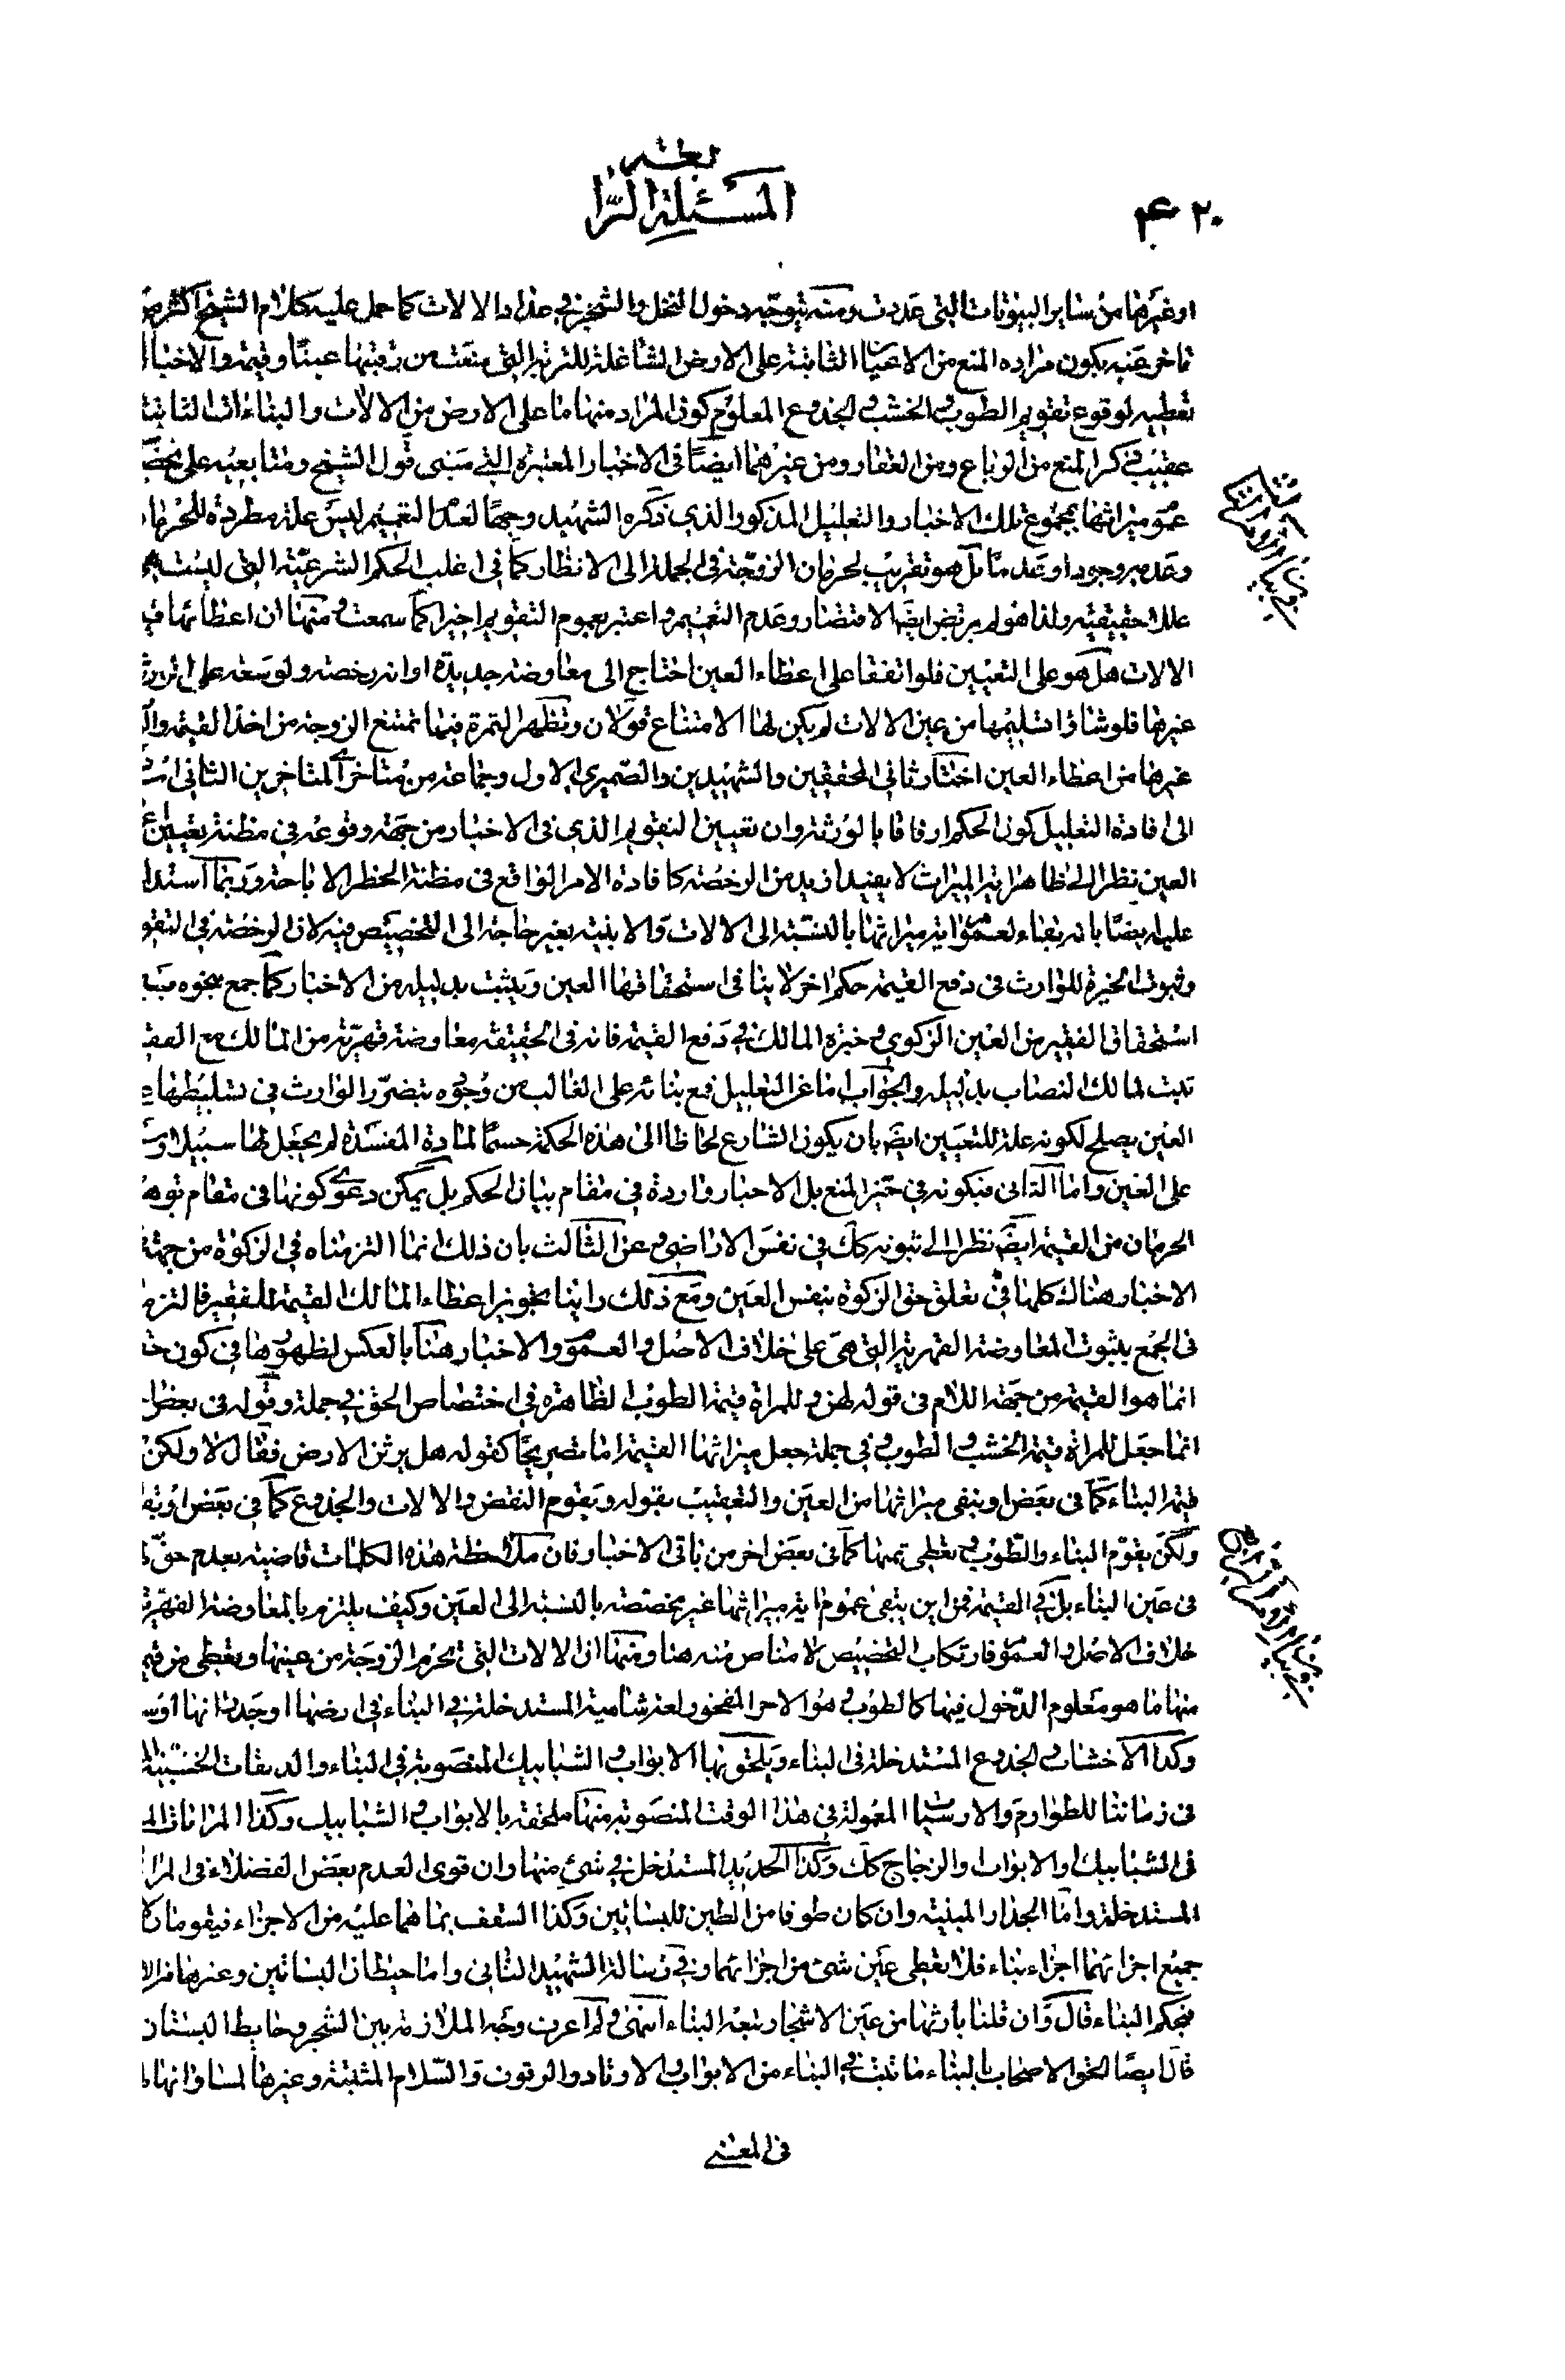 ٤٢٠
المسئلة الرابعة
او غيرها من ساير البيوتات التي عددت ومنه يتوجه دخول النخل والشجر في عداد الالات كما حمل عليه كلام الشيخ اكثر من
تاخر عنه يكون مراده المنع من الاعيان الثابتة على الارض الشاغلة للتربة التي منعت من رقبتها عينا وقيمة والاخبار
تعطيه لوقوع تقويم الطوب والخشب والجذوع المعلوم كون المراد منها ما على الارض من الالات والبناءات الثابتة
عقيب ذكر المنع من الرباع ومن العقار ومن غيرهما ايضا في الاخبار المعتبرة التي مبنى قول الشيخ ومتابعيه على
عموم ميراثها بمجموع تلك الاخبار والتعليل المذكور الذي ذكره الشهيد وجها لعدم التعميم ليس علة مطردة للحرمان
وعدمه وجودا وعدما بل هو تقريب لحرمان الزوجة في الجملة الى الانظار كما في اغلب الحكم الشرعية التي ليست
عللا حقيقية ولذا هو لم يرتض ايضا الاقتصار وعدم التعميم واعتبر بعموم التقويم اخيرا كما سمعت ومنها ان اعطائها قيمة
الالات هل هو على التعيين فلو اتفقا على اعطاء العين احتاج الى معاوضة جديدة او انه رخصة ولتوسعة على الورثة
غيرها فلو شاؤا تسليمها من عين الالات لم يكن لها الامتناع قولان وتظهر الثمرة فيما تمتنع الزوجة من اخذ القيمة
غيرها من اعطاء العين اختار ثاني المحققين والشهيدين والصميري الاول وجماعة من متاخري المتاخرين الثاني
الى افادة التعليل كون الحكم ارفاقا بالورثة وان تعيين التقويم الذي في الاخبار من جهة وقوعه في مظنة تعيين
العين نظرا الى ظاهر اية الميراث لا يفيد ازيد من الرخصة كافادة الامر الواقع في مظنة الحظر الاباحة وربما استدل
عليه ايضا بانه بقاء لعموم اية ميراثها بالنسبة الى الالات والابنية بغير حاجة الى التخصيص فيه لان الرخصة في التقويم
وثبوت الخيرة للوارث في دفع القيمة حكم اخر لا ينافي استحقاقها العين ويثبت بدليله من الاخبار كما جمع بنحوه
استحقاق الفقير من العين الزكوي وخيرة المالك في دفع القيمة فانه في الحقيقة معاوضة قهرية من المالك مع الفقير
ثبت لمالك النصاب بدليله والجواب اما عن التعليل فمع بنائه على الغالب من وجوه يتضرر الوارث في تسليطها
العين يصلح لكونه علة للتعيين ايضا بان يكون الشارع لحاظا الى هذه الحكمة حسما لمادة المفسدة لم يجعل لها سبيلا
على العين واما الثاني فبكونه في حيز المنع بل الاخبار واردة في مقام بيان الحكم بل يمكن دعوى كونها في مقام توهم
الحرمان من القيمة ايضا نظرا الى ثبوته كك في نفس الاراضي وعن الثالث بان ذلك انما التزمناه في الزكوة من جهة
الاخبار هناك كلها في تعلق حق الزكوة بنفس العين ومع ذلك راينا تجويز اعطاء المالك القيمة للفقير فالتزمنا
في الجمع بثبوت المعاوضة القهرية التي هي على خلاف الاصل والعموم والاخبار هنا بالعكس لظهورها في كون
انما هو القيمة من جهة اللام في قوله لهن و للمراة قيمة الطوب الظاهرة في اختصاص الحق في جملة وقوله في بعض
انما جعل للمراة قيمة الخشب والطوب في جملة جعل ميراثها القيمة اما تصريحا كقوله هل يرثن الارض فقال لا ولكن
قيمة البناء كما في بعض او بنفي ميراثها من العين والتعقيب بقوله ويقوم النقض والالات والجذوع كما في بعض
ولكن يقوم البناء والطوب وتعطى ثمنها كما في بعض اخر من باقي الاخبار فان ملاحظة هذه الكلمات قاضية بعدم حق
في عين البناء بل في القيمة فمن اين يبقى عموم اية ميراثها غير مخصصة بالنسبة الى العين وكيف يلتزم بالمعاوضة القهرية
خلاف الاصل والعموم فارتكاب التخصيص لا مناص منه هنا ومنها ان الالات التي تحرم الزوجة من عينها وتعطى من قيمة
منها ما هو معلوم الدخول فيها كالطوب وهو الاجر المفخور لغة شامية المستدخلة في البناء
وكذا الاخشاب والجذوع المستدخلة في البناء ويلحق بها الابواب والشبابيك المنصوبة في البناء
في زماننا للطوارم والارسيات المعمولة في هذا الوقت المنصوبة منها ملحقة بالابواب والشبابيك وكذا المرايات
في الشبابيك والابواب والزجاج كك وكذا الحديد المستدخل في شئ منها وان قوى العدم بعض الفضلاء في المرايا
المستدخلة واما الجدار المبنية وان كان طوفا من الطين للبساتين وكذا السقف بما هما عليه من الاجزاء فيقومان
جميع اجزائهما اجزاء بناء فلا تعطى عين شئ من اجزائهما وفي رسالة الشهيد الثاني واما حيطان البساتين وغيرها
فبحكم البناء قال وان قلنا بارثها من عين الاشجار تبعه البناء انتهى ولم اعرف وجه الملازمة بين الشجر وحايط البستان
قال ايضا الحق الاصحاب بالبناء ما تثبت في البناء من الابواب والاوتاد والرفوف والسلام المثبتة وغيرها لمساواتها
في المعنى